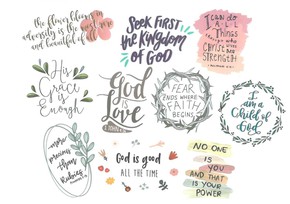 the flower that blooms in
adversity is the most rare
and beautiful of all
Seek First
the Kingdom
OF GOD
I CAN DO
ALL
Things
through
CHRIST
WHO GIVES ME
STRENGTH
His
Grace is
Enough
God
is
Love
FEAR
ENDS WHERE
FAITH
BEGINS
I am
a Child of
God
more
precious
than
Rubies
God is good
ALL THE TIME
NO ONE
IS YOU
AND THAT IS
YOUR
POWER